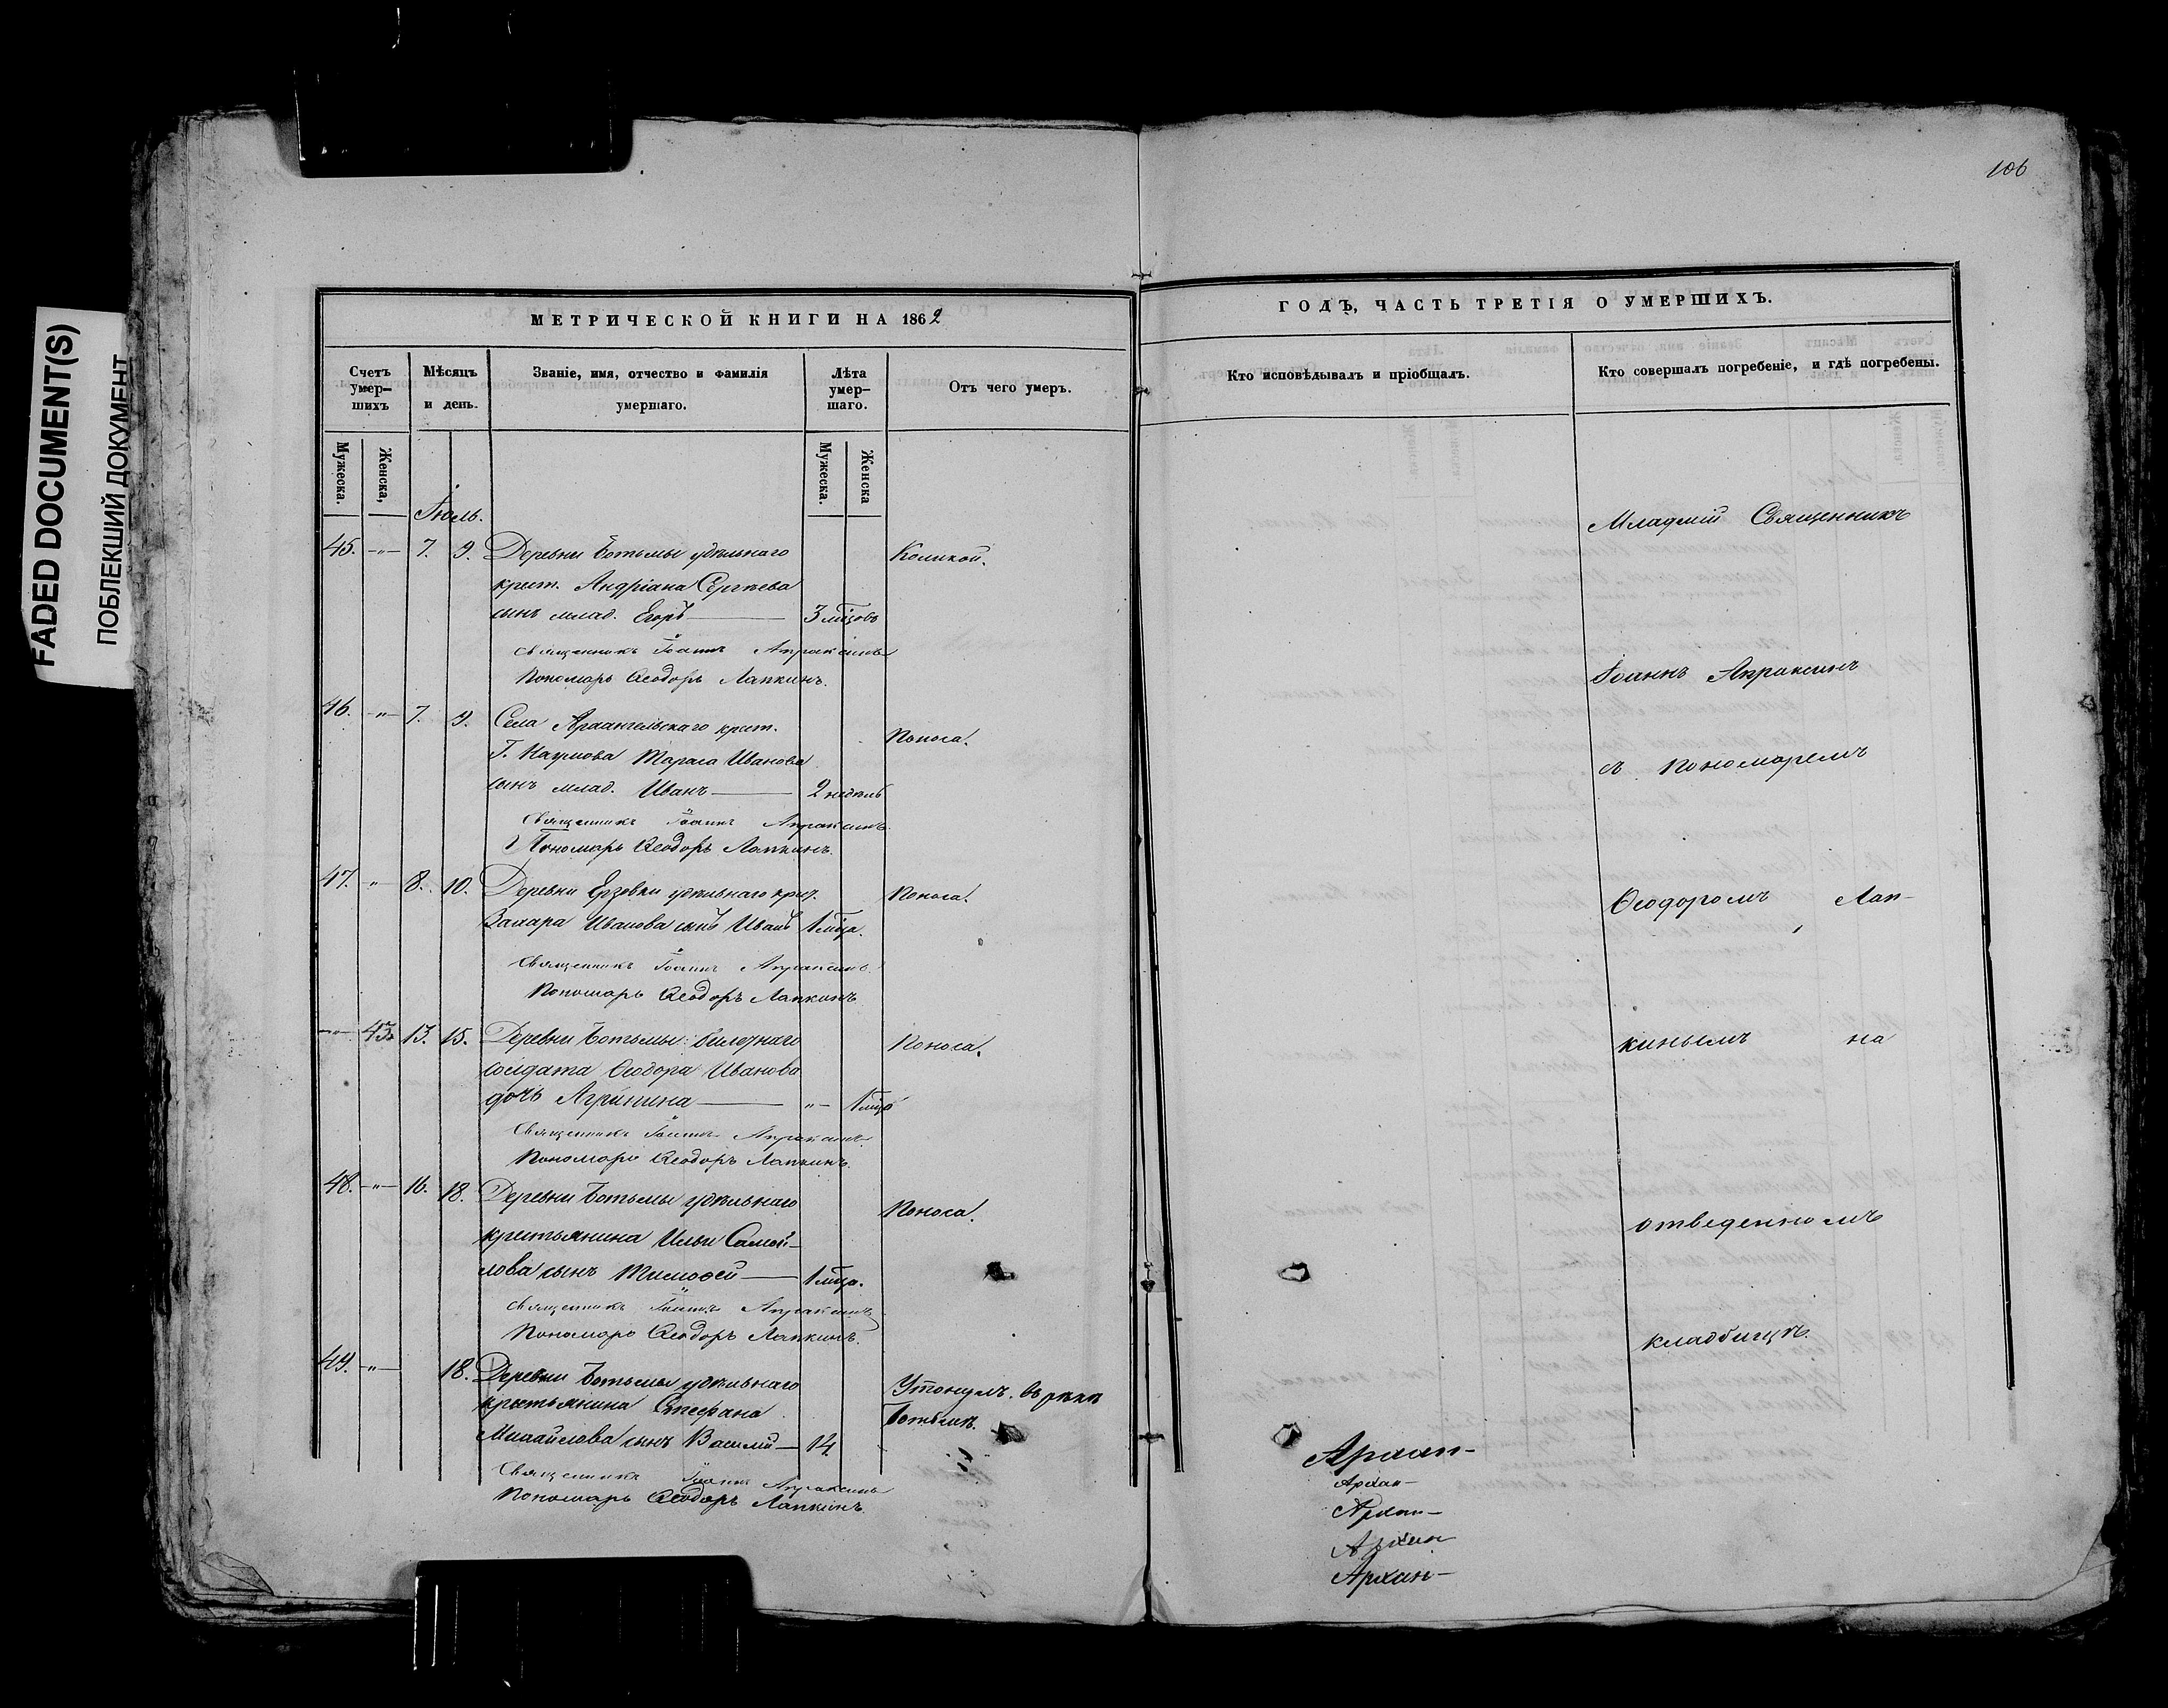 FADED DOCUMENT(S)
ПОБЛЕКШИЙ ДОКУМЕНТ
МЕТРИЧЕСКОЙ КНИГИ НА 1862
Счетъ умер-шихъ
Мѣсяцъ и день.
Званіе, имя, отчество и фамилія умершаго.
Лѣта умер-шаго.
Отъ чего умеръ.
Мужеска.
Женска,
Мужеска.
Женска
Іюль.
45. -„- 7. 9. Деревни Ботьмы удѣльнаго Коликой.
крест. Андріана Сергѣева
сынъ млад. Егоръ 3 мѣцовъ
Священникъ Іоаннъ Апраксинъ
Пономарь Ѳеодоръ Лапкинъ.
46. -„- 7. 9. Села Архангельскаго крест.
Поноса.
Г. Наумова Тараса Иванова
сынъ млад. Иванъ 2 недѣль
Священникъ Іоаннъ Апраксинъ.
Пономарь Ѳеодоръ Лапкинъ.
47. „ 8. 10. Деревни Ерзовки удѣльнаго крест. Поноса.
Захара Иванова сынъ Иванъ 1 мѣца.
Священникъ Іоаннъ Апраксинъ.
Пономарь Ѳеодоръ Лапкинъ.
-„- 43. 13. 15. Деревни Ботьмы билетнаго Поноса.
солдата Ѳеодора Иванова
дочь Агрипина -„- 1 мѣца
Священникъ Іоаннъ Апраксинъ
Пономарь Ѳеодоръ Лапкинъ.
48. -„- 16. 18. Деревни Ботьмы удѣльнаго Поноса.
крестьянина Ильи Самой-
лова сынъ Тимоѳей 1 мѣца.
Священникъ Іоаннъ Апраксинъ
Пономарь Ѳеодоръ Лапкинъ.
49. -„- 18. Деревни Ботьмы удѣльнаго Утонулъ въ рѣкѣ
крестьянина Стефана Ботьмѣ.
Михайлова сынъ Василій 14
Священникъ Іоаннъ Апраксинъ
Пономарь Ѳеодоръ Лапкинъ.
106
ГОДЪ, ЧАСТЬ ТРЕТІЯ О УМЕРШИХЪ.
Кто исповѣдывалъ и пріобщалъ.
Кто совершалъ погребеніе, и гдѣ погребены.
Младшій Священникъ
Іоаннъ Апраксинъ
съ пономаремъ
Ѳеодоромъ Лап-
кинымъ на
отведенномъ
кладбищѣ.
Архан-
Архан-
Архан-
Архан
Архан-